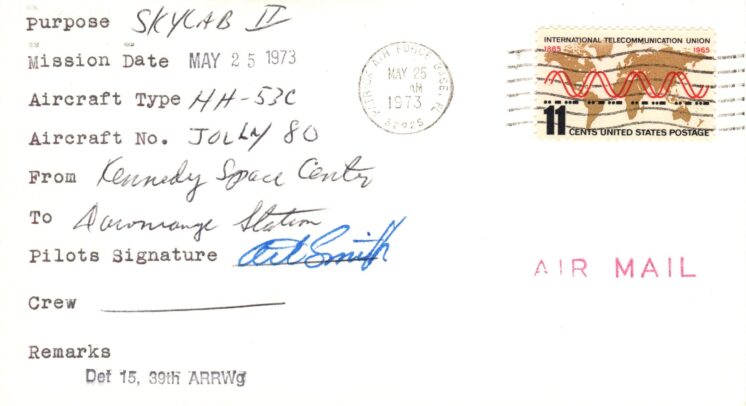 Purpose SKYLAB II
Mission Date MAY 25 1973
Aircraft Type HH-53C
Aircraft No. JOLLY 80
From Kennedy Space Center
To Downrange Station
Pilots Signature Art Smith
Crew
Remarks
Det 15, 39th ARRWg
PATRICK AIR FORCE BASE, FL
MAY 25
AM
1973
32925
INTERNATIONAL TELECOMMUNICATION UNION
1865 1965
11 CENTS UNITED STATES POSTAGE
AIR MAIL